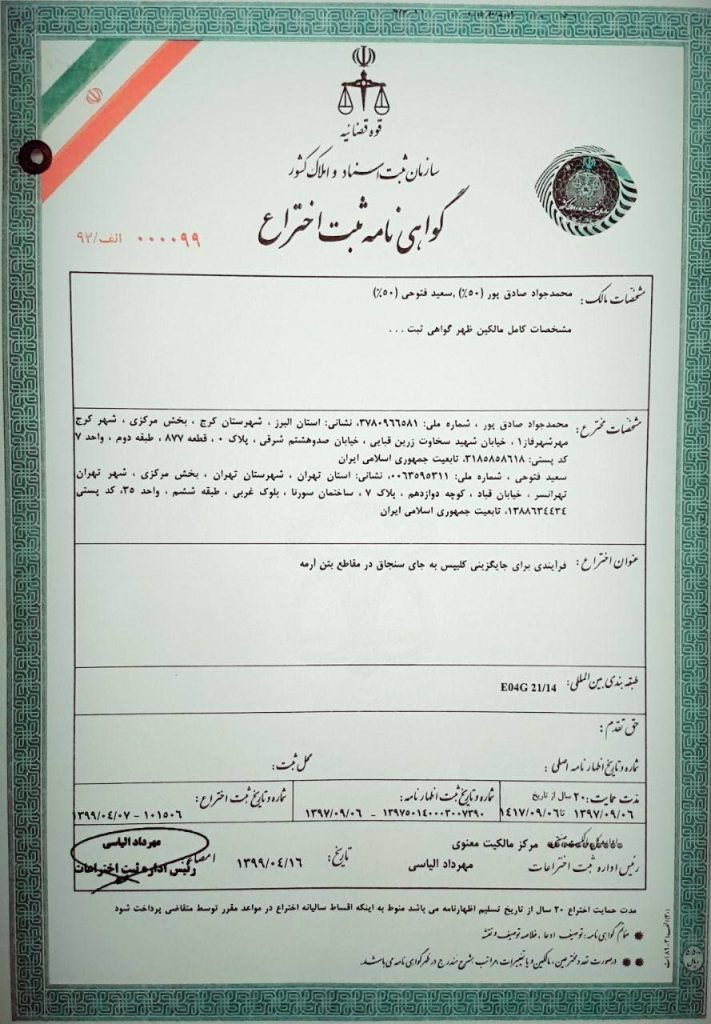 قوه قضائیه
سازمان ثبت اسناد و املاک کشور
گواهی نامه ثبت اختراع
الف/۹۲ ۰۰۰۰۹۹
مشخصات مالک: محمدجواد صادق پور (۵۰٪) ,سعید فتوحی (۵۰٪)
مشخصات کامل مالکین ظهر گواهی ثبت . . .
مشخصات مخترع: محمدجواد صادق پور ، شماره ملی: ۳۷۸۰۹۶۶۵۸۱، نشانی: استان البرز ، شهرستان کرج ، بخش مرکزی ، شهر کرج
مهرشهرفاز۱ ، خیابان شهید سخاوت زرین قبایی ، خیابان صدوهشتم شرقی ، پلاک ۰ ، قطعه ۸۷۷ ، طبقه دوم ، واحد ۷
کد پستی: ۳۱۸۵۸۵۸۶۱۸، تابعیت جمهوری اسلامی ایران
سعید فتوحی ، شماره ملی: ۰۰۶۳۵۹۵۳۱۱، نشانی: استان تهران ، شهرستان تهران ، بخش مرکزی ، شهر تهران
تهرانسر ، خیابان قباد ، کوچه دوازدهم ، پلاک ۷ ، ساختمان سورنا ، بلوک غربی ، طبقه ششم ، واحد ۳۵، کد پستی
۱۳۸۸۶۳۴۴۳۴، تابعیت جمهوری اسلامی ایران
عنوان اختراع: فرآیندی برای جایگزینی کلیپس به جای سنجاق در مقاطع بتن آرمه
طبقه بندی بین المللی: E04G 21/14
حق تقدم:
شماره و تاریخ اظهار نامه اصلی : محل ثبت:
مدت حمایت: ۲۰ سال از تاریخ
۱۳۹۷/۰۹/۰۶ تا ۱۴۱۷/۰۹/۰۶
شماره و تاریخ ثبت اظهارنامه:
۱۳۹۷۵۰۱۴۰۰۰۳۰۰۷۳۹۰ - ۱۳۹۷/۰۹/۰۶
شماره و تاریخ ثبت اختراع:
۱۰۱۵۰۶ - ۱۳۹۹/۰۴/۰۷
مرکز مالکیت معنوی
رئیس اداره ثبت اختراعات مهرداد الیاسی
تاریخ: ۱۳۹۹/۰۴/۱۶
امضاء
مهرداد الیاسی
رئیس اداره ثبت اختراعات
مدت حمایت اختراع ۲۰ سال از تاریخ تسلیم اظهارنامه می باشد منوط به اینکه اقساط سالیانه اختراع در مواعد مقرر توسط متقاضی پرداخت شود
ضمائم گواهی نامه: توصیف، ادعا، خلاصه توصیف و نقشه
درصورت تعدد مخترعین، مالکین و یا تغییرات، مراتب بشرح مندرج در ظهر گواهی نامه می باشد.